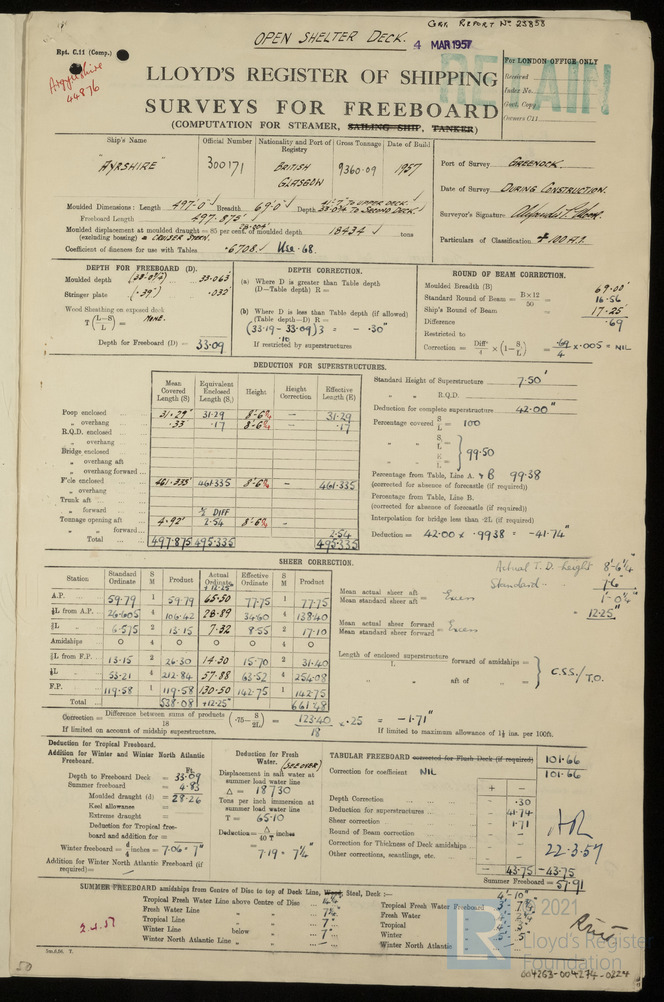 Gek. REPORT No 23858
OPEN SHELTER DECK.
4 MAR 1957
Rpt. C.11 (Comp.)
Argyleshire
44876
For LONDON OFFICE ONLY
Received
Index No.
Govt. Copy
Owners C11
RETAIN
LLOYD'S REGISTER OF SHIPPING
SURVEYS FOR FREEBOARD
(COMPUTATION FOR STEAMER, SAILING SHIP, TANKER)
Ship's Name Official Number Nationality and Port of Registry Gross Tonnage Date of Build
"AYRSHIRE" 300171 BRITISH GLASGOW 9360.09 1957
Port of Survey GREENOCK.
Date of Survey DURING CONSTRUCTION.
Surveyor's Signature
Particulars of Classification + 100 A.1.
Moulded Dimensions: Length 497'.0" Breadth 69.0' Depth 41'.7" TO UPPER DECK. TO SECOND DECK.
Freeboard Length 497.875'
Moulded displacement at moulded draught = 85 per cent. of moulded depth 18434 tons
(excluding bossing) & CRUISER STERN.
Coefficient of fineness for use with Tables .6708 Use .68.
DEPTH FOR FREEBOARD (D).
Moulded depth 33.063'
Stringer plate (.39") .032'
Wood Sheathing on exposed deck
T (L-S/L) = NONE.
Depth for Freeboard (D) = 33.09
DEPTH CORRECTION.
(a) Where D is greater than Table depth
(D—Table depth) R =
(b) Where D is less than Table depth (if allowed)
(Table depth—D) R =
(33.19 - 33.09) 3 = - .30"
.10
If restricted by superstructures
ROUND OF BEAM CORRECTION.
Moulded Breadth (B) 69.00'
Standard Round of Beam = B×12/50 = 16.56
Ship's Round of Beam = 17.25"
Difference .69
Restricted to
Correction = Diff/4 × (1 - S/L) = .69/4 × .005 = NIL
DEDUCTION FOR SUPERSTRUCTURES.
Mean Covered Length (S) Equivalent Enclosed Length (S1) Height Height Correction Effective Length (E)
Poop enclosed 31.29 31.29 8'-6¼ — 31.29
„ overhang .33 .17 8'-6¼ — .17
R.Q.D. enclosed
„ overhang
Bridge enclosed
„ overhang aft
„ overhang forward
F'cle enclosed 461.335 461.335 8'-6¼ — 461.335
„ overhang
Trunk aft
„ forward ½ DIFF
Tonnage opening aft 4.92' 2.54 8'-6¼ —
„ „ forward 2.54
Total 497.875 495.335 495.335
Standard Height of Superstructure 7.50'
„ „ R.Q.D.
Deduction for complete superstructure 42.00"
Percentage covered S/L = 100
„ „ S1/L =
„ „ E/L = 99.50
Percentage from Table, Line A. & B 99.38
(corrected for absence of forecastle (if required))
Percentage from Table, Line B.
(corrected for absence of forecastle (if required))
Interpolation for bridge less than ·2L (if required)
Deduction = 42.00 × .9938 = -41.74"
SHEER CORRECTION.
Station Standard Ordinate S M Product Actual Ordinate + 12.25" Effective Ordinate S M Product
A.P. 59.79 1 59.79 65.50 77.75 1 77.75
⅙L from A.P. 26.605 4 106.42 28.89 34.60 4 138.40
⅓L „ 6.575 2 13.15 7.32 8.55 2 17.10
Amidships 0 4 0 0 0 4 0
⅓L from F.P. 13.15 2 26.30 14.30 15.70 2 31.40
⅙L „ 53.21 4 212.84 57.88 63.52 4 254.08
F.P. 119.58 1 119.58 130.50 142.75 1 142.75
Total 538.08 +12.25" 661.48
Actual T.D. height 8'-6¼"
Standard 7'-6"
1'-0¼"
= 12.25"
Mean actual sheer aft
Mean standard sheer aft = Excess
Mean actual sheer forward
Mean standard sheer forward = Excess
Length of enclosed superstructure forward of amidships =
L
„ „ aft of „ =
C.S.S./T.O.
Correction = Difference between sums of products / 18 (·75 - S/2L) = 123.40/18 × .25 = -1.71"
If limited on account of midship superstructure.
If limited to maximum allowance of 1½ ins. per 100ft.
Deduction for Tropical Freeboard.
Addition for Winter and Winter North Atlantic Freeboard.
Ft.
Depth to Freeboard Deck = 33.09
Summer freeboard = 4.83
Moulded draught (d) = 28.26
Keel allowance =
Extreme draught =
Deduction for Tropical freeboard and addition for =
Winter freeboard = d/4 inches = 7.06 = 7"
Addition for Winter North Atlantic Freeboard (if required) =
Deduction for Fresh Water. (SEE OVER)
Displacement in salt water at summer load water line
Δ = 18730
Tons per inch immersion at summer load water line
T = 65.10
Deduction = Δ/40T inches
= 7.19 = 7¼"
TABULAR FREEBOARD corrected for Flush Deck (if required) 101.66
Correction for coefficient NIL 101.66
+ -
Depth Correction .30
Deduction for superstructures 41.74
Sheer correction 1.71
Round of Beam correction -
Correction for Thickness of Deck amidships -
Other corrections, scantlings, etc. -
43.75 -43.75
Summer Freeboard = 57.91
22.3.57
SUMMER FREEBOARD amidships from Centre of Disc to top of Deck Line, Wood, Steel, Deck :—
Tropical Fresh Water Line above Centre of Disc 14¼"
Fresh Water Line „ „ 7¼"
Tropical Line „ „ 7"
Winter Line below „ 7"
Winter North Atlantic Line „ „
4'-10"
Tropical Fresh Water Freeboard
Fresh Water „
Tropical „
Winter „
Winter North Atlantic „
2.4.57
50
© 2021
LR
Lloyd's Register
Foundation
004263-004274-0224